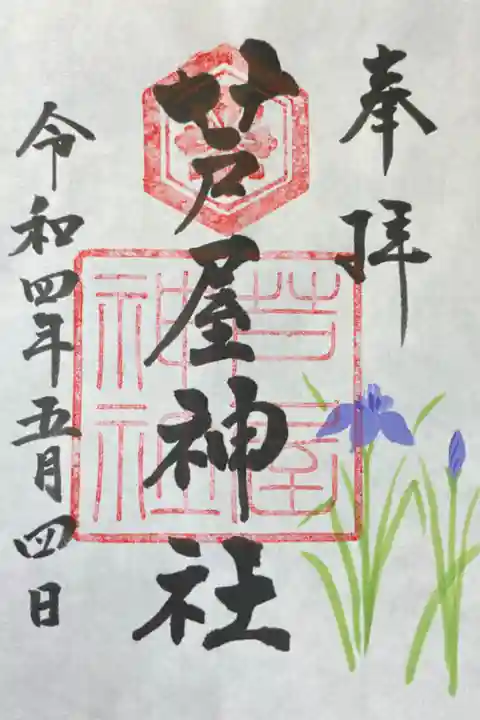 奉拝
芦屋神社
芦屋
神社
令和四年五月四日